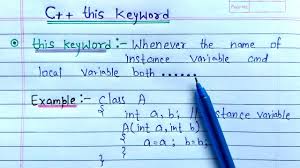 C++ this keyword
this keyword :- Whenever the name of
instance variable and
local variable both ......
Example :- class A
{
int a, b; // instance variable
A(int a, int b)
{
a=a; b=b;
}